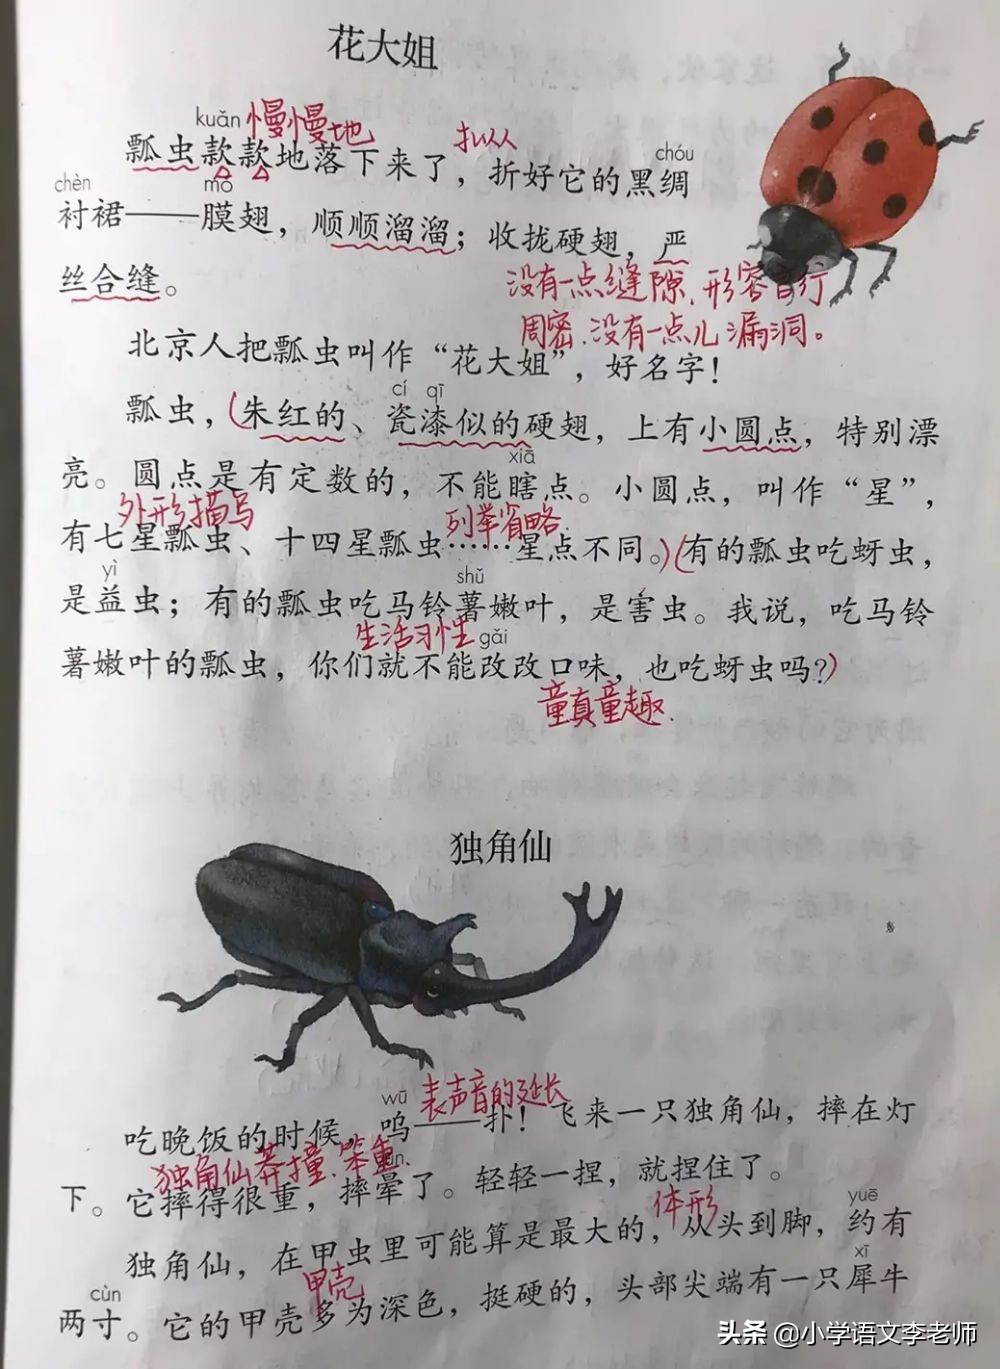 花大姐
kuǎn 慢慢地
瓢虫款款地落下来了，折好它的黑绸
拟人 chóu
chèn mó
衬裙——膜翅，顺顺溜溜；收拢硬翅，严
丝合缝。
没有一点缝隙，形容言行
周密，没有一点儿漏洞。
北京人把瓢虫叫作“花大姐”，好名字！
cí qī
瓢虫，（朱红的、瓷漆似的硬翅，上有小圆点，特别漂
xiā
亮。圆点是有定数的，不能瞎点。小圆点，叫作“星”，
外形描写 列举省略
有七星瓢虫、十四星瓢虫……星点不同。）（有的瓢虫吃蚜虫，
yì shǔ
是益虫；有的瓢虫吃马铃薯嫩叶，是害虫。我说，吃马铃
生活习性 gǎi
薯嫩叶的瓢虫，你们就不能改改口味，也吃蚜虫吗？）
童真童趣.
独角仙
wū 表声音的延长
吃晚饭的时候，呜——扑！飞来一只独角仙，摔在灯
独角仙莽撞.笨重
下。它摔得很重，摔晕了。轻轻一捏，就捏住了。
体形 yuē
独角仙，在甲虫里可能算是最大的，从头到脚，约有
cùn 甲壳 xī
两寸。它的甲壳多为深色，挺硬的，头部尖端有一只犀牛
头条 @小学语文李老师